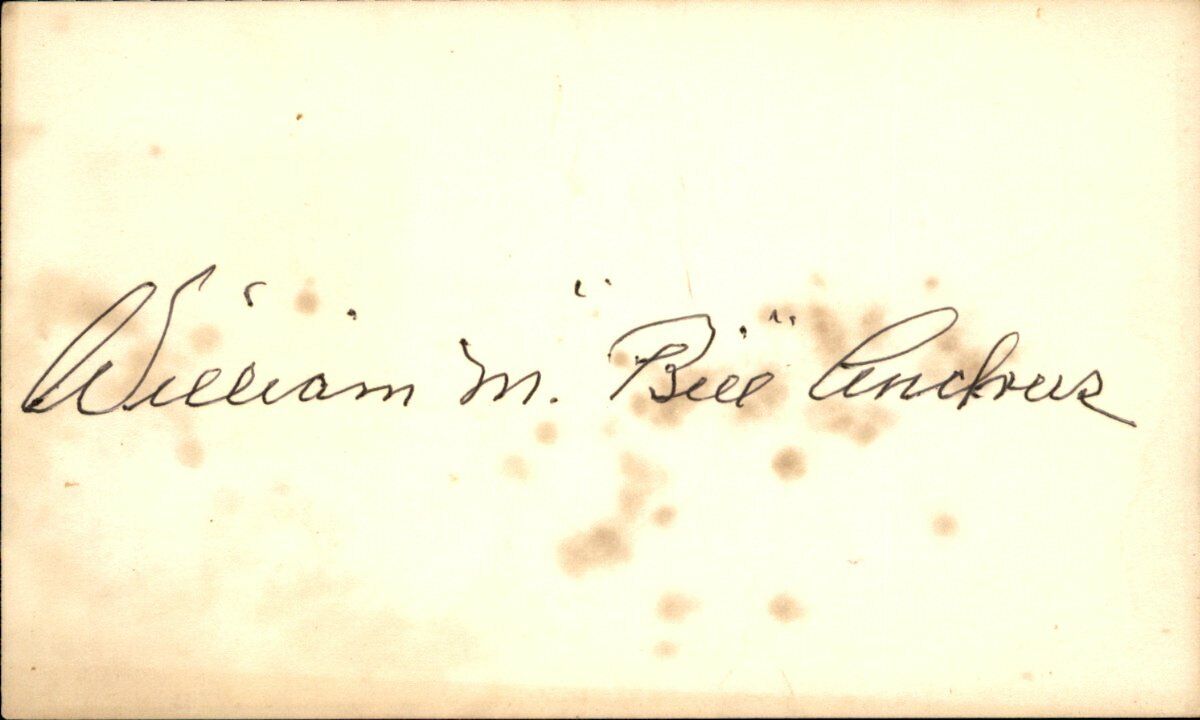 William M. "Bill" Andrus